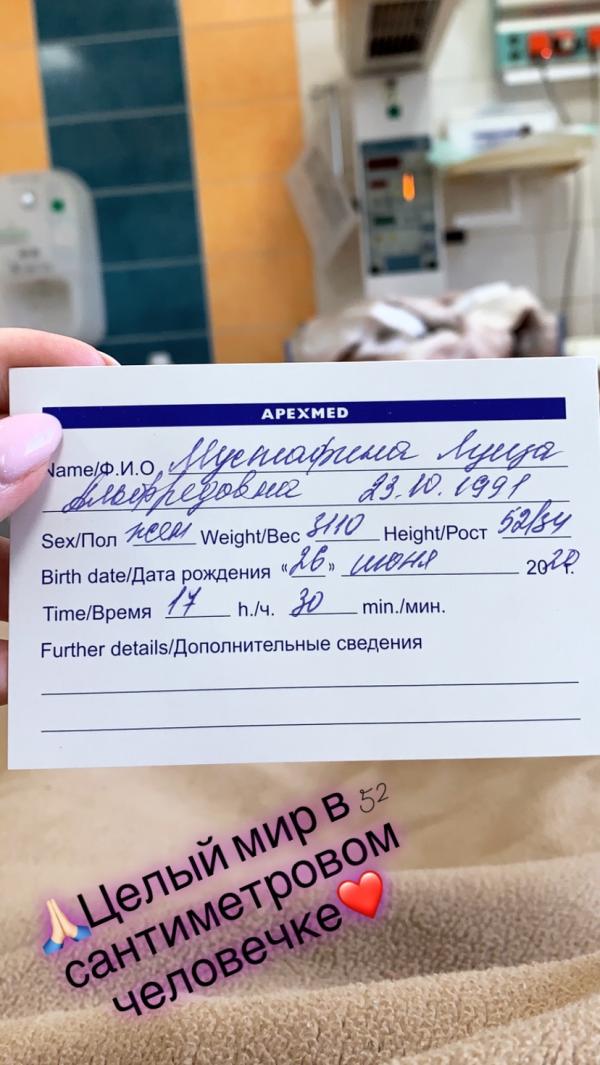 APEXMED
Name/Ф.И.О Мустафина Луиза
Альфредовна 23.10.1991
Sex/Пол жен Weight/Вес 3110 Height/Рост 52/34
Birth date/Дата рождения «26» июня 2020г.
Time/Время 17 h./ч. 30 min./мин.
Further details/Дополнительные сведения
🙏🏻Целый мир в 52
сантиметровом
человечке❤️